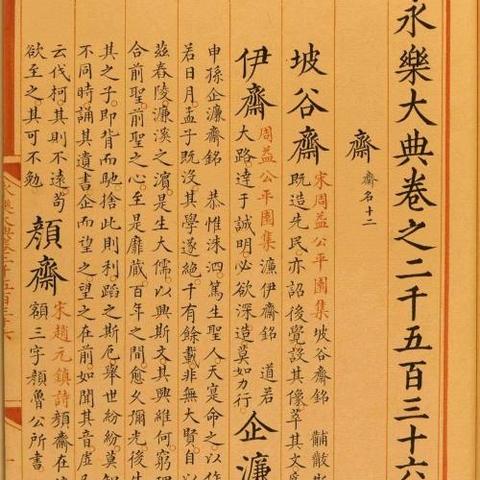 永樂大典卷之二千五百三十六
齋 齋名十二
坡谷齋
宋周益公平園集坡谷齋銘 黼黻
既造先民亦詔後覺設其像萃其文
伊齋
周益公平園集濂伊齋銘 道若
大路達于誠明必欲深造莫如力行
企濂
申孫企濂齋銘 恭惟洙泗篤生聖人天寔命之以作
若日月孟子既沒其學遂絕千有餘載非無大賢自以
玆舂陵濂溪之濵是生大儒以興斯文其興維何窮理
合前聖前聖之心至是靡蔵百年之間愈久彌光後生
其之子即背而馳捨此則利蹈之斯厄舉世紛紛莫知
不同時誦其遺書企而望之望之在前如聞其音虚
云伐柯其則不遠苟
欲至之其可不勉
顔齋
宋趙元鎮詩顔齋在
額三字顔魯公所書